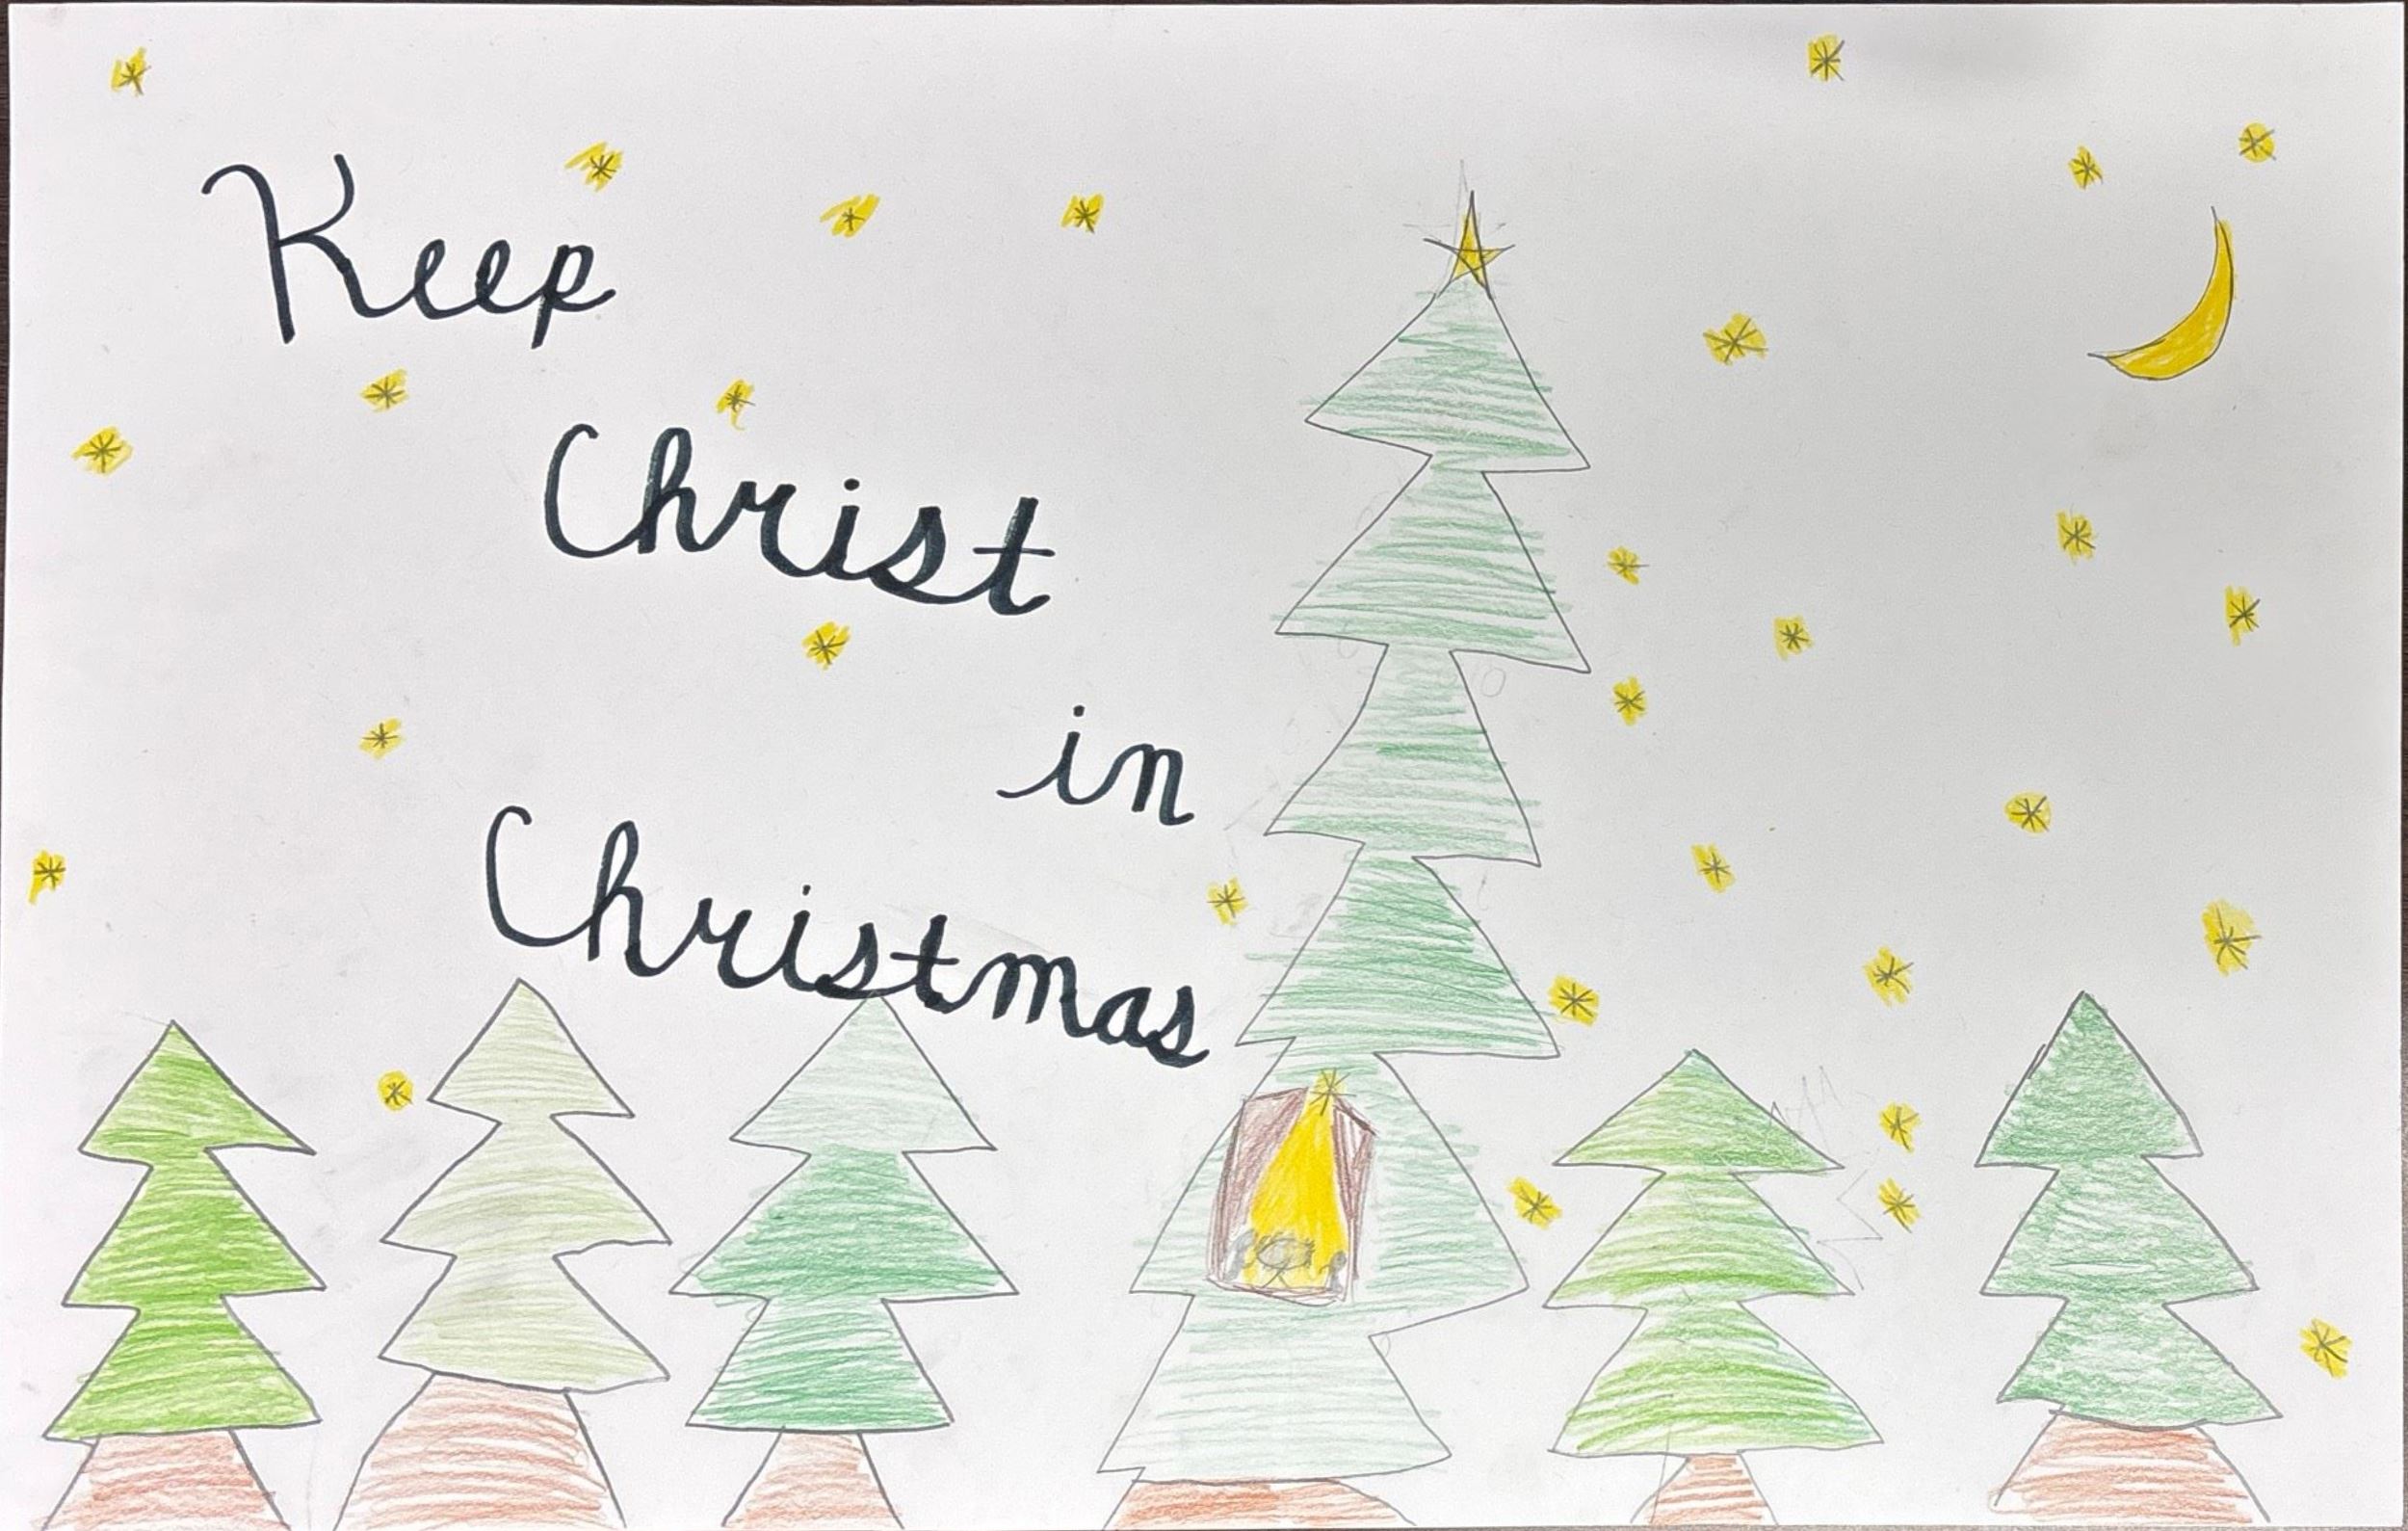 Keep
Christ
in
Christmas